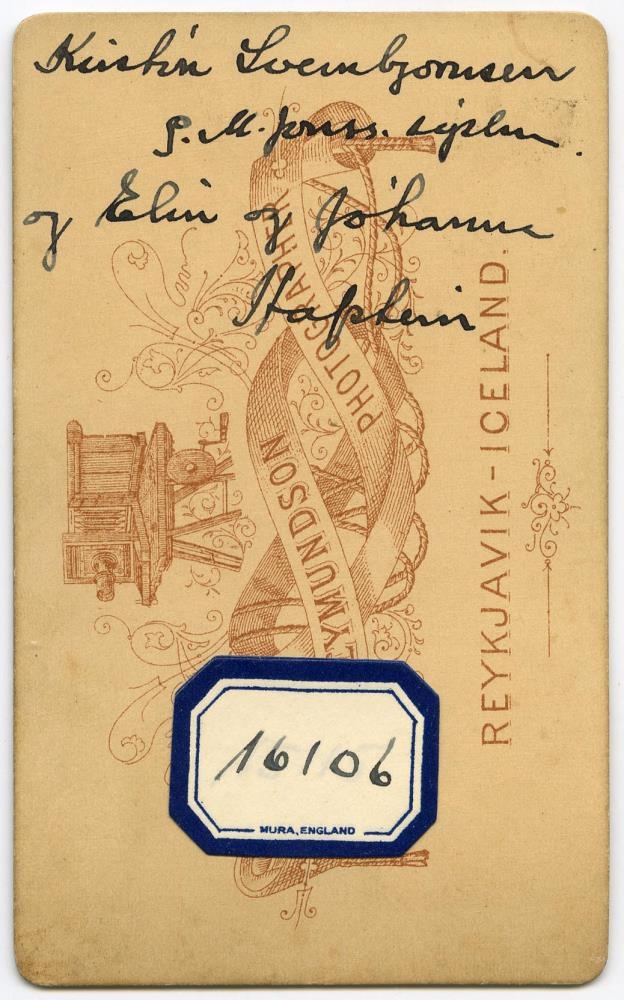 Kristín Sveinbjörnsen
og Elin og Jóhanna
Hafstein
PHOTOGRAPHER
YMUNDSON
REYKJAVIK - ICELAND.
16106
MURA, ENGLAND